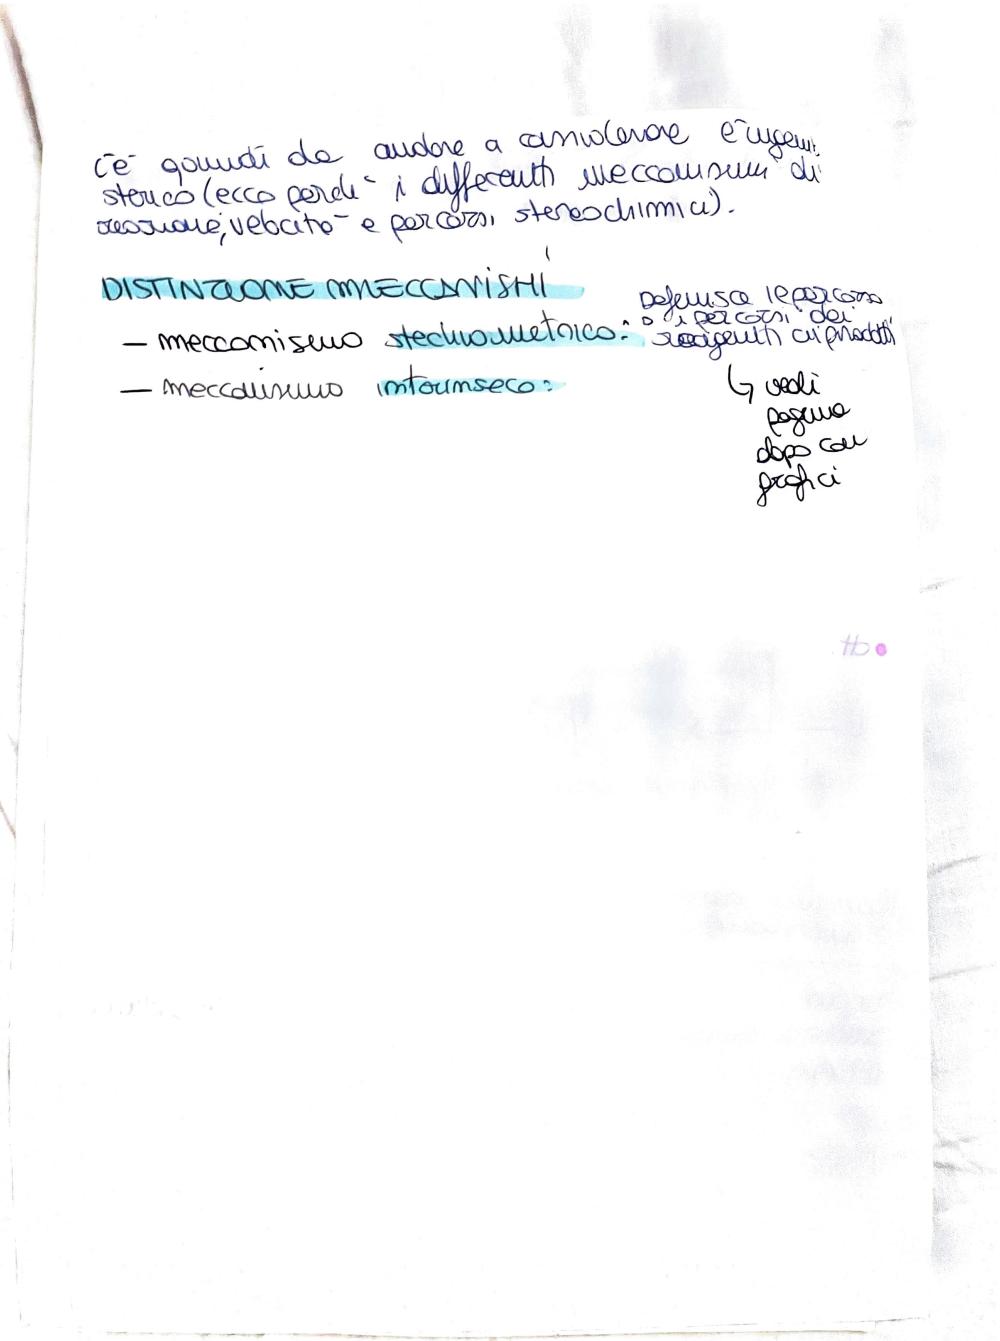 C'è quindi da andare a considerare l'ingom.
sterico (ecco perché i differenti meccanismi di
reazione, velocità e percorsi stereochimici).
DISTINZIONE MECCANISMI
– meccanismo stechiometrico:
Definisce il percorso
o i percorsi dei
reagenti ai prodotti
– meccanismo intrinseco:
↳ vedi
pagina
dopo con
grafici